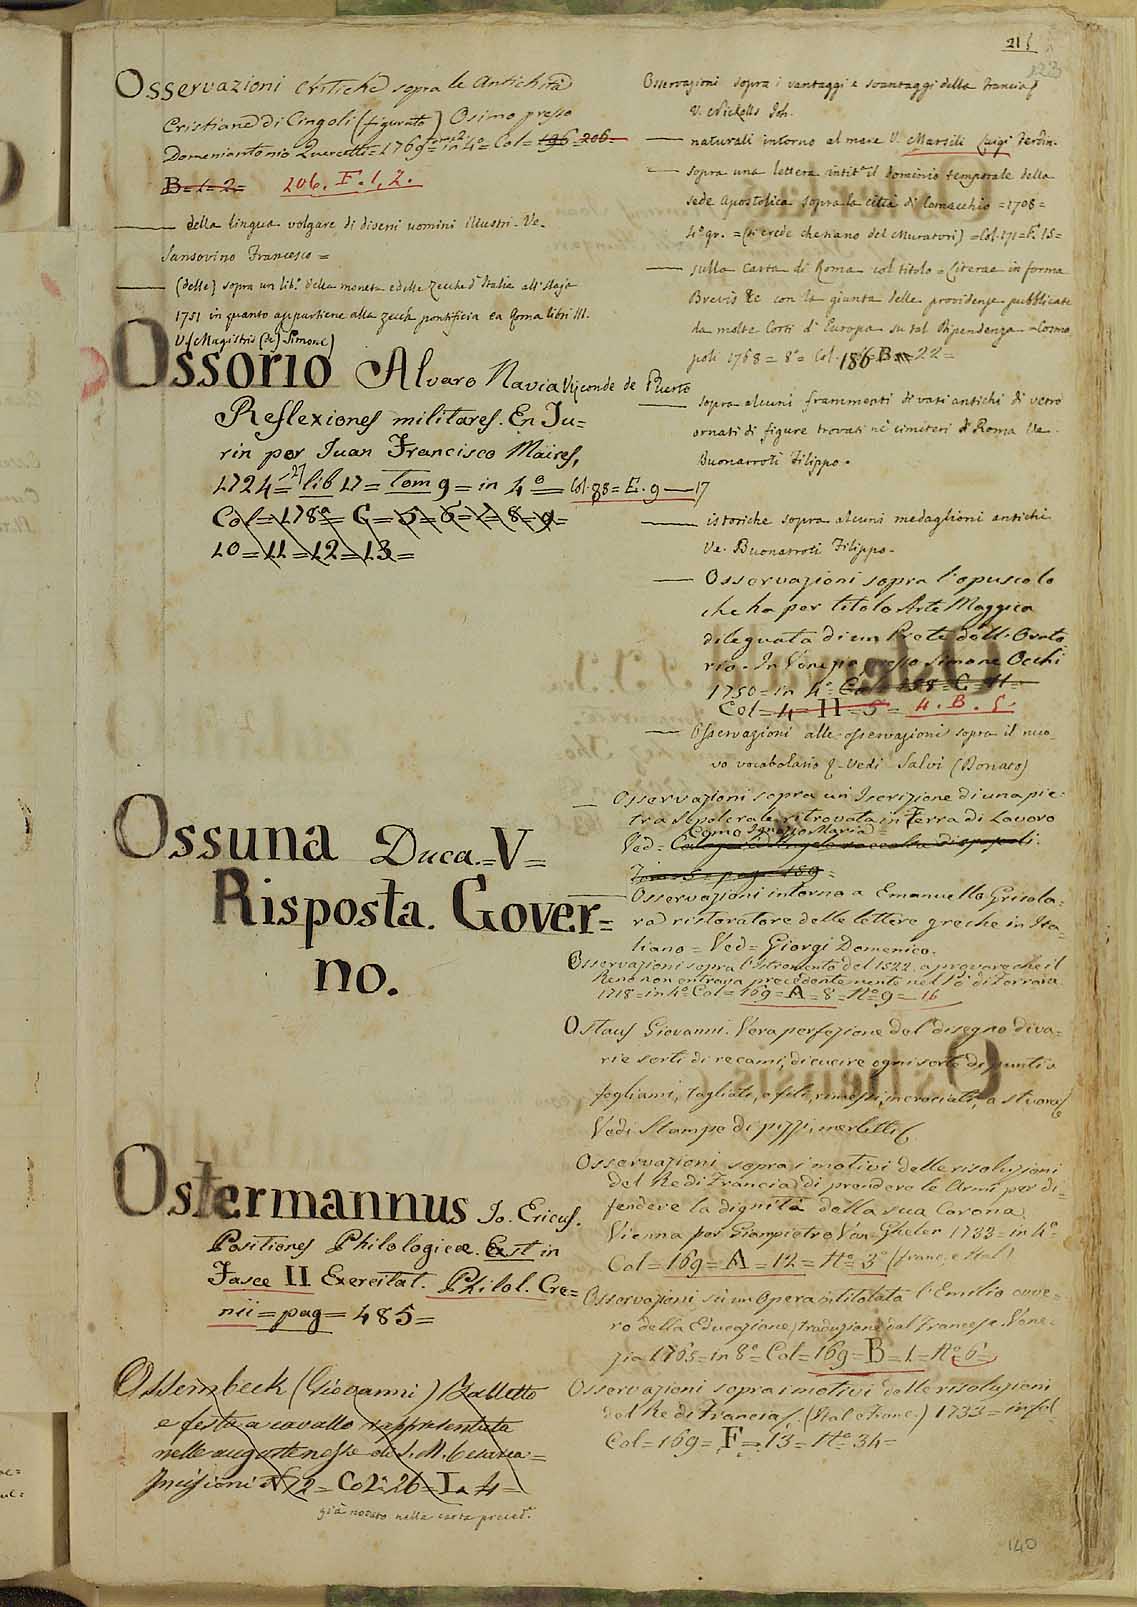 215
123
Osservazioni critiche sopra le Antichità
Cristiane di Cingoli (figurato) Osimo presso
Domeniantonio Quercetti = 1769 = in 4° = Col = 196 = 206 =
B = 1 = 2 = 206. F. 1, 2.
della lingua volgare di diversi uomini illustri. Ve.
Sansovino Francesco =
(delle) sopra un lib.° della moneta e delle Zecche d'Italia all'
1751 in quanto appartiene alla zecca pontificia ea Roma libri III.
V. Magistris (de) Simone)
Ossorio Alvaro Navia Visconde de Puerto
Reflexiones militares. En Tu=
rin por Juan Francisco Maires,
1724 = lib 17 = Tom 9 = in 4° = Col. 88 = E. 9 — 17
Col = 178 = C = 5 = 6 = 7 = 8 = 9 =
10 = 11 = 12 = 13 =
Ossuna Duca. = V =
Risposta. Gover=
no.
Ostermannus Jo. Ericus.
Positiones Philologicæ. Exst in
Fasce II Exercitat. Philol. Cre=
nii = pag = 485 =
Ossembeck (Giovanni) Balletto
e festa a cavallo rappresentata
nelle auguste nozze di S. M. Cesarea =
Incisioni N° 12 = Col = 26 = I. 4 =
già notato nella carta preced.te
Osservazioni sopra i vantaggi e svantaggi della Francia
V. Nickolls Joh.
naturali intorno al mare V. Marsili Luigi Ferdin.
sopra una lettera intit.a il dominio temporale della
sede Apostolica sopra la città di Comacchio = 1708 =
4° gr. = (si crede che siano del Muratori) = Col. 171 = F. 15 =
sulla carta di Roma col titolo = Literae in forma
Brevis &c con la giunta delle providenze pubblicate
da molte Corti d'Europa su tal Dipendenza = Cosmo
poli 1768 = 8° = Col. 186 B 22 =
sopra alcuni frammenti di vasi antichi di vetro
ornati di figure trovati ne' cimiteri di Roma Ve.
Buonarroti Filippo.
istoriche sopra alcuni medaglioni antichi
Ve. Buonarroti Filippo.
Osservazioni sopra l'opuscolo
che ha per titolo Arte Maggica
dileguata di un Prete dell'Orato
rio. In Venezia presso Simone Occhi
1750 = in 4° Col = 158 = C = 11 =
Col = 4 = H = 5 = 4. B. 5.
Osservazioni alle osservazioni sopra il nuo-
vo vocabolario & Vedi Salvi (Bonaso)
Osservazioni sopra un' Iscrizione di una pie=
tra sepolcrale ritrovata in Terra di Lavoro
Como Ignazio Maria =
Ved = Calogerà Angelo raccolta di opuscoli.
Tomo 5 = pag = 189 =
Osservazioni intorno a Emanuello Grisolo=
ra ristoratore delle lettere greche in Ita=
liano = Ved = Giorgi Domenico.
Osservazioni sopra l'Istromento del 1522. a provare che il
Reno non entrava precedentemente nel Pò di Ferrara
1718 = in 4° Col = 169 = A = 8 = N° 9 = 16
Ostaus Giovanni. Vera perfezione del disegno di va=
rie sorti di recami, di cucire ogni sorte di punti a
fogliami, tagliati, a fili, rimessi, incrociati, a stuora &
Vedi Stampe di pizzi, merletti &
Osservazioni sopra i motivi delle risoluzioni
del Re di Francia di prendere le Armi per di=
fendere la dignità della sua Corona
Vienna per Giampietro Van-Ghelen 1733 = in 4°
Col = 169 = A = 12 = N° 3° (franc. e Ital.)
Osservazioni sù un Opera intitolata l'Emilio ovve=
ro della Educazione, traduzione dal Francese. Vene=
zia 1765 = in 8° = Col = 169 = B = 1 = N° 6°
Osservazioni sopra i motivi delle risoluzioni
del Re di Francia &. (Ital. e Franc.) 1733 = in fol.
Col = 169 = F = 13 = N° 34 =
140